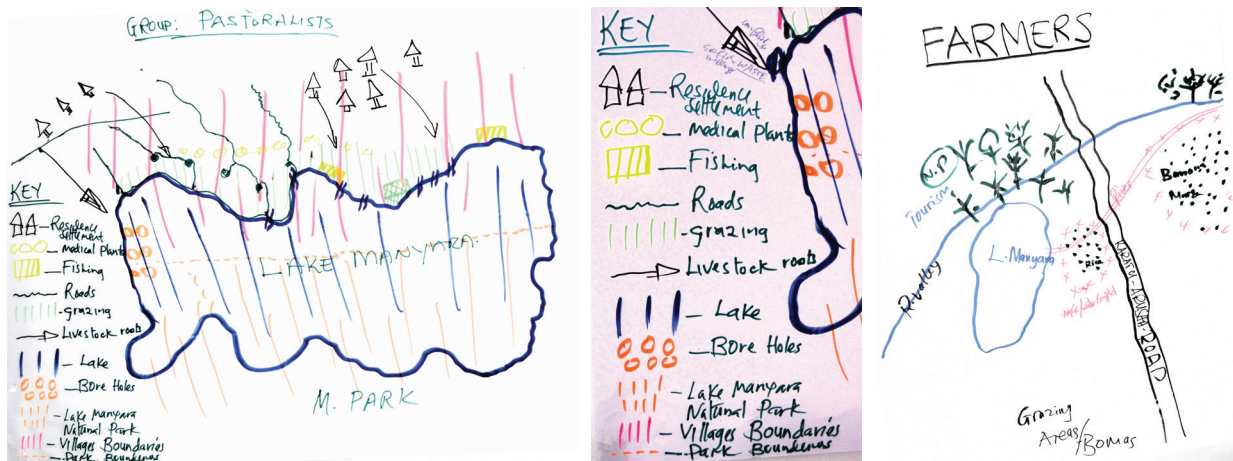 GROUP: PASTORALISTS
LAKE MANYARA
M. PARK
KEY
Residence
Settlement
medical plants
Fishing
Roads
grazing
Livestock roots
Lake
Bore Holes
Lake Manyara
Natural Park
Villages Boundaries
Park Bounderies
KEY
Residence
Settlement
medical plants
Fishing
Roads
grazing
Livestock roots
Lake
Bore Holes
Lake Manyara
Natural Park
Villages Boundaries
Park Bounderies
FARMERS
N.P
Tourism
R. Valley
L. Manyara
River
Rice
KARATU-ARUSHA ROAD
Grazing
Areas/Bomas